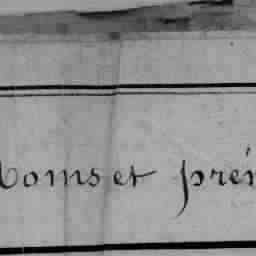 Noms et prén